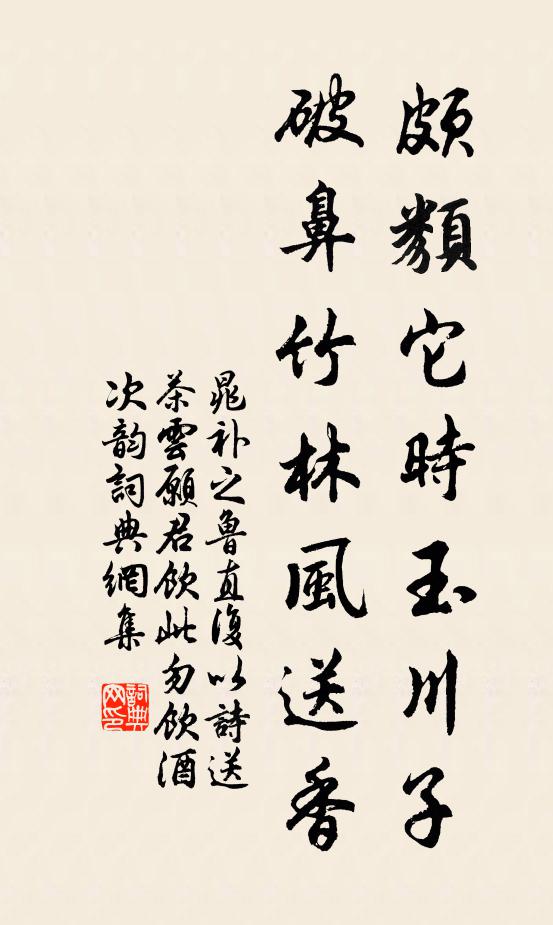 頗類它時玉川子
破鼻竹林風送香
晁補之魯直復以詩送
茶雲願君飲此勿飲酒
次韵詞典網集
詞典网印